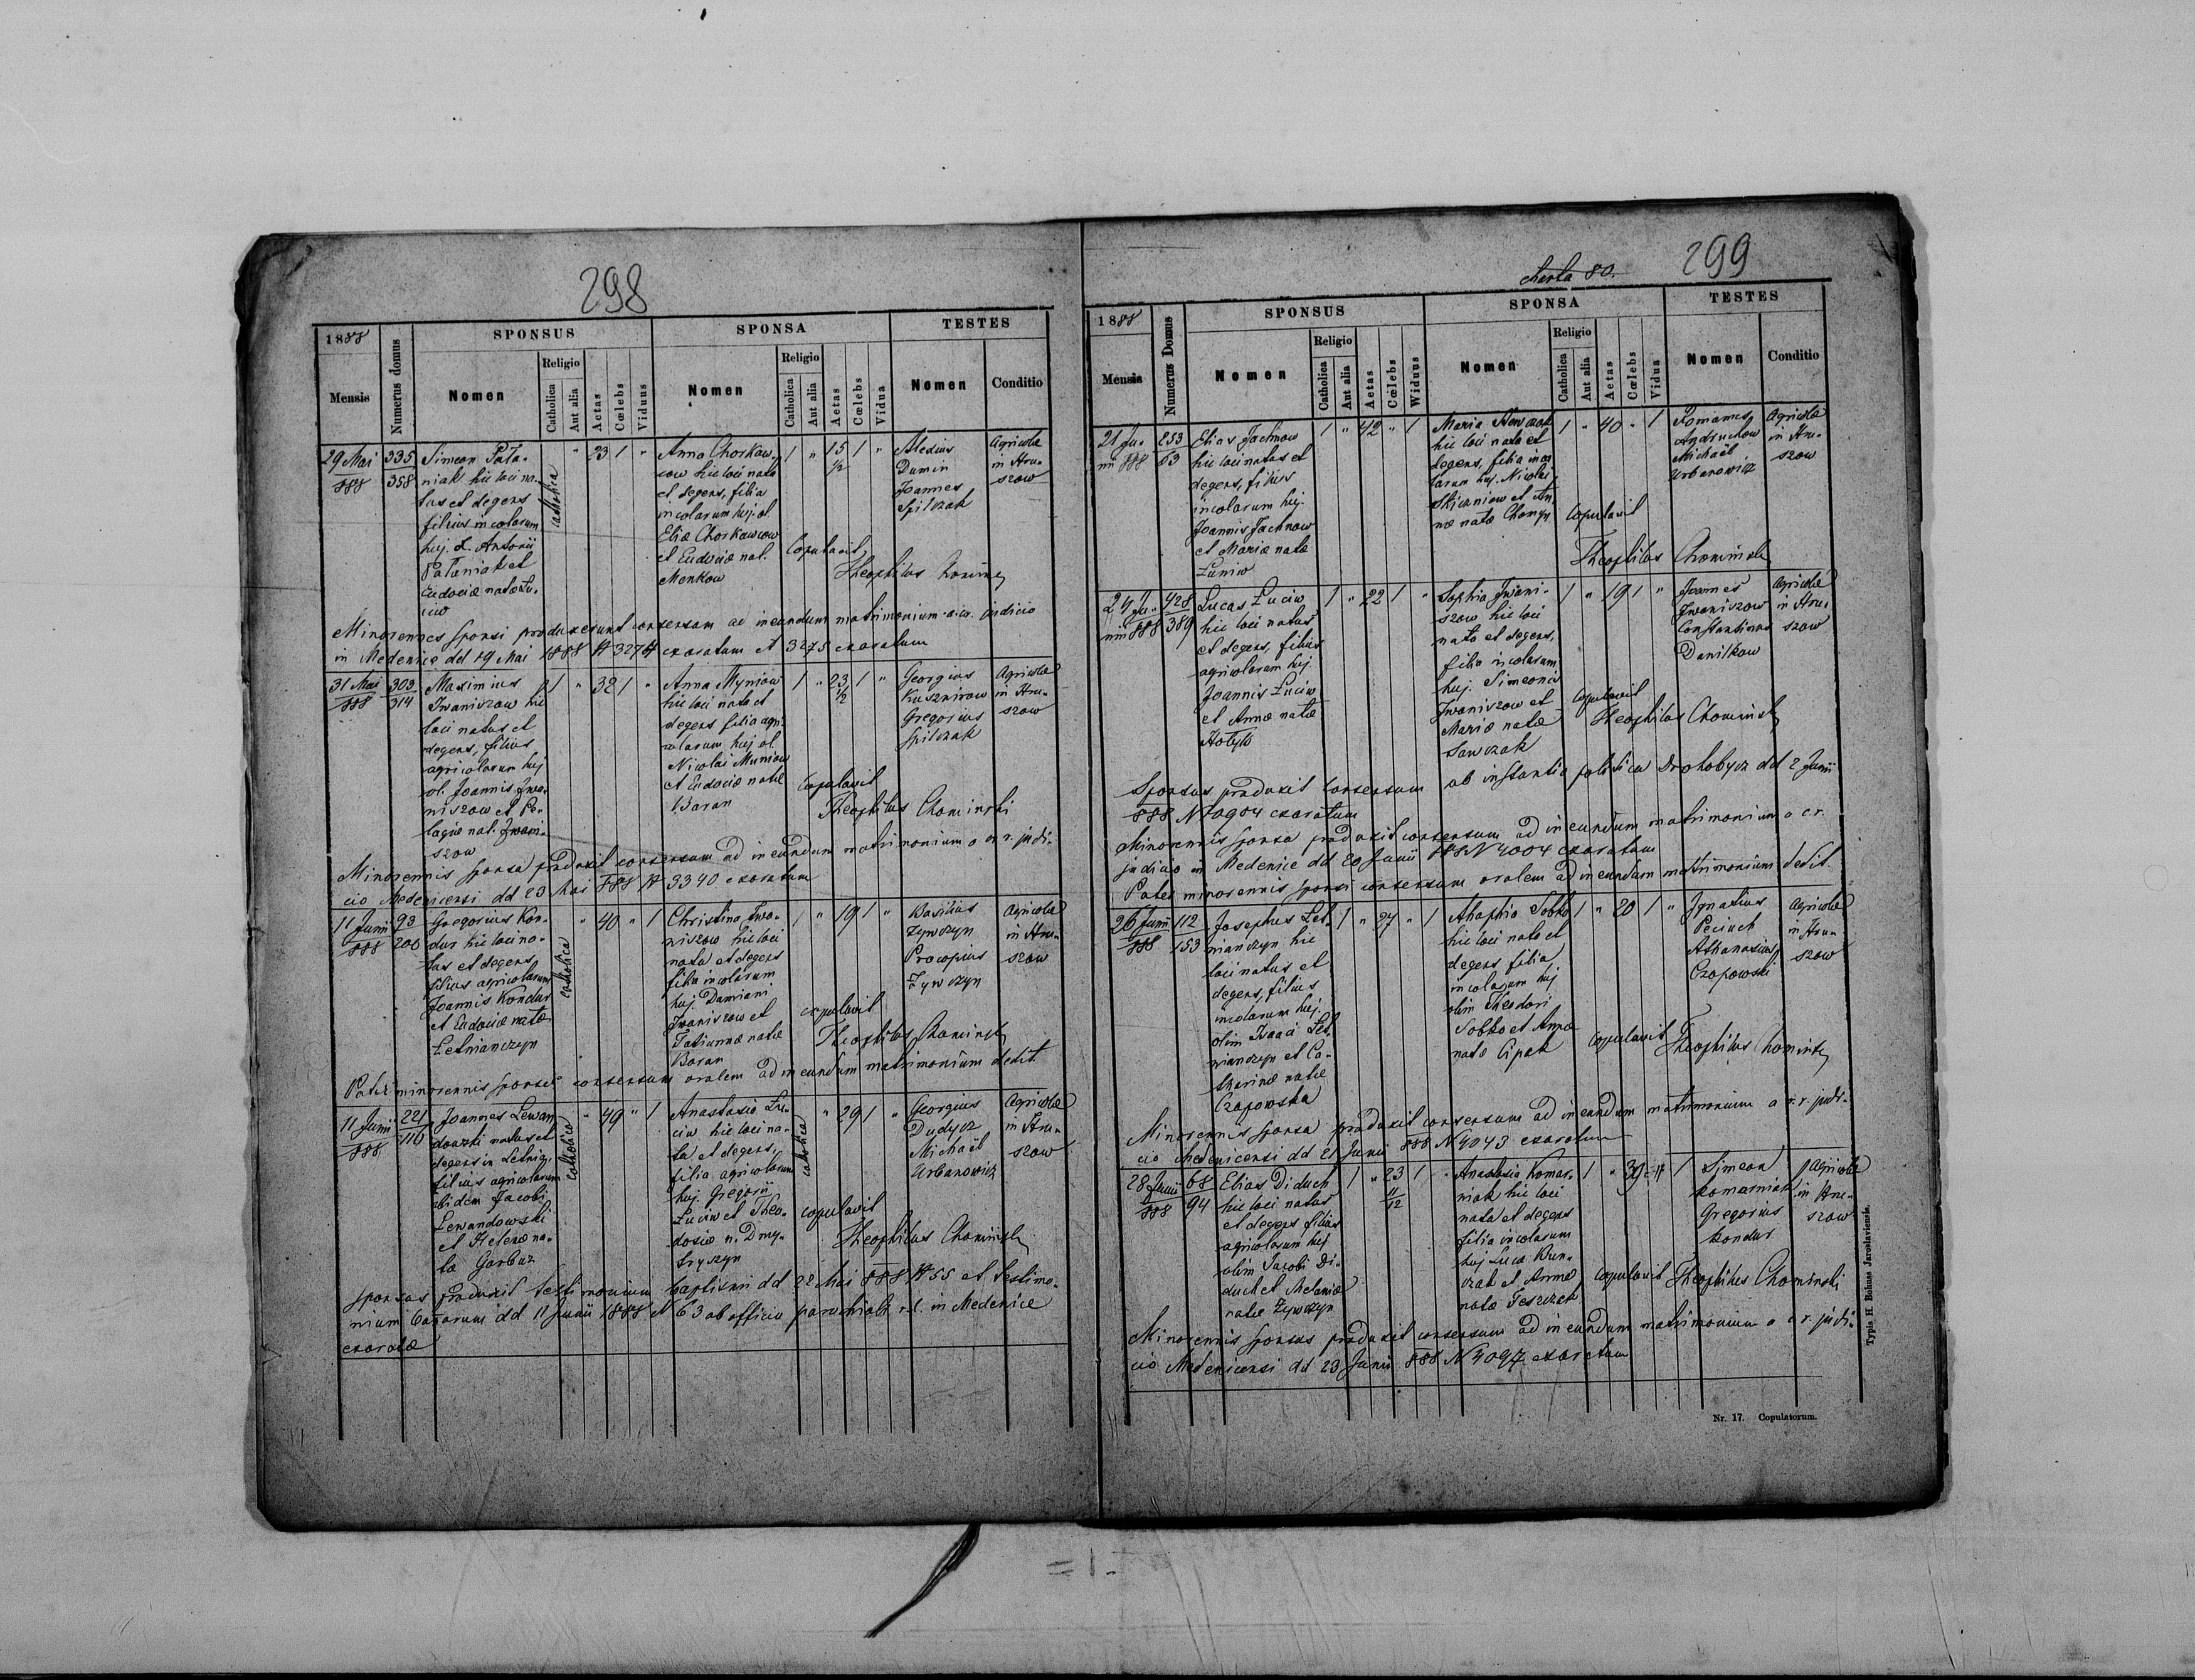 298
1888
Mensis
Numerus domus
SPONSUS
Nomen
Religio
Catholica
Aut alia
Aetas
Cœlebs
Viduus
SPONSA
Nomen
Religio
Catholica
Aut alia
Aetas
Cœlebs
Vidua
TESTES
Nomen
Conditio
29 Mai
888
335
358
Simeon Pata-
niak hic loci na-
tus et degens
filius incolarum
huj. l. Antonii
Pataniak et
Eudociæ natæ Lu-
ciw
catholica
" 23 1 "
Anna Chorkaw-
cow hic loci nata
et degens, filia
incolarum huj. ol
Eliæ Chorkawcow
et Eudociæ nat.
Menkow
1 " 15 1/2 1 "
Alexius
Dumin
Joannes
Spilczak
Agricolæ
in Hru-
szow
Copulavit
Theophilus
Minorennes sponsi produxerunt consensum ad ineundum matrimonium a c.r. judicio
in Medenice dd 19 Mai 1888 N 3274 exaratum et 3275 exaratum
31 Mai
888
303
314
Maximius
Iwaniszow hic
loci natus et
degens, filius
agricolarum huj
ol. Joannis Iwa-
niszow et Pe-
lagiæ nat. Iwani-
szow
1 " 32 1 "
Anna Myniow
hic loci nata et
degens filia agri-
colarum huj. ol.
Nicolai Muniow
et Eudociæ natæ
Baran
1 " 23 1/2 1 "
Georgius
Kusznirow
Gregorius
Spilczak
Agricolæ
in Hru-
szow
Copulavit
Theophilus Chominski
Minorennis sponsa produxit consensum ad ineundum matrimonium a c. r. judi-
cio Medenicensi dd 23 Mai 888 N 3340 exaratum
11 Junii
888
93
200
Gregorius Kon-
dur hic loci na-
tus et degens,
filius agricolarum
Joannis Kondur
et Eudociæ natæ
Letnianczyn
catholica
" 40 " 1
Christina Iwa-
niszow hic loci
nata et degens
filia incolarum
huj. Damiani
Iwaniszow et
Tatiannæ natæ
Baran
1 " 19 1 "
Basilius
Zywczyn
Procopius
Zywczyn
Agricolæ
in Hru-
szow
copulavit
Theophilus Chominski
Pater minorennis sponsæ consensum oralem ad ineundum matrimonium dedit
11 Junii
888
221
116
Joannes Lewan
dowski natus et
degens in Letnia,
filius agricolarum
ibidem Jacobi
Lewandowski
et Helenæ na-
ta Garbuz
catholica
" 49 " 1
Anastasia Lu-
ciw hic loci na-
ta et degens,
filia agricolarum
huj. Gregorii
Luciw et Theo-
dosiæ n. Dmy-
tryszyn
catholica
" 29 1 "
Georgius
Dudycz
Michaël
Urbanowicz
Agricolæ
in Hru-
szow
copulavit
Theophilus Chominski
Sponsus produxit testimonium baptismi dd 22 Mai 888 N 55 et testimo-
nium bannorum dd 11 Junii 1888 N 63 ab officio parochiali r.l. in Medenice
exarata
Charta 80.
299
1888
Mensis
Numerus Domus
SPONSUS
Nomen
Religio
Catholica
Aut alia
Aetas
Cœlebs
Widuus
SPONSA
Nomen
Religio
Catholica
Aut alia
Aetas
Cœlebs
Vidua
TESTES
Nomen
Conditio
21 Ju-
nii 888
253
63
Elias Jachnow
hic loci natus et
degens, filius
incolarum huj.
Joannis Jachnow
et Mariæ natæ
Luniw
1 " 42 " 1
Maria
hic loci nata et
degens, filia inco
larum huj. Nicolai
et An
næ natæ
1 " 40 " 1
Andruchow
Michaël
Urbanowicz
Agricolæ
in Hru-
szow
Copulavit
Theophilus Chominski
24 Ju-
nii 888
428
389
Lucas Luciw
hic loci natus
et degens, filius
agricolarum huj.
Joannis Luciw
et Annæ natæ
Hotyk
1 " 22 1 "
Sophia Iwani-
szow hic loci
nata et degens,
filia incolarum
huj. Simeonis
Iwaniszow et
Mariæ natæ
Sawczak
1 " 19 1 "
Joannes
Iwaniszow
Constantinus
Danilkow
Agricolæ
in Hru-
szow
copulavit
Theophilus Chominski
Sponsus produxit consensum ab instantia politica Drohobycz dd 2 Junii
888 N 10904 exaratum
Minorennis sponsa produxit consensum ad ineundum matrimonium a c.r.
judicio in Medenice dd 20 Junii 888 N 4004 exaratum
Pater minorennis sponsi consensum oralem ad ineundum matrimonium dedit.
26 Junii
888
112
153
Josephus Let-
nianczyn hic
loci natus et
degens, filius
incolarum huj.
olim Isaaci Let-
nianczyn et Ca-
tharinæ natæ
Czapowska
1 " 27 " 1
Ahaphia Sobko
hic loci nata et
degens filia
incolarum huj
olim Theodori
Sobko et Annæ
natæ Cipak
1 " 20 1 "
Ignatius
Peciuch
Athanasius
Czopowski
Agricolæ
in Hru-
szow
copulavit Theophilus Chominski
Minorennis sponsa produxit consensum ad ineundum matrimonium a c. r. judi-
cio Medenicensi dd 21 Junii 888 N 4043 exaratum
28 Junii
888
68
94
Elias Diduch
hic loci natus
et degens filius
agricolarum huj
olim Jacobi Di-
duch et Melaniæ
natæ Zywczyn
1 " 23 11/12 1 "
Anastasia Komar-
niak hic loci
nata et degens
filia incolarum
huj Lucæ Kun-
czak et Annæ
natæ Teszczak
1 " 39 " 1
Simeon
Komarniak
Gregorius
Kondur
Agricolæ
in Hru-
szow
copulavit Theophilus Chominski
Minorennis sponsus produxit consensum ad ineundum matrimonium a c r. judi-
cio Medenicensi dd 23 Junii 888 N 4097 exaratum
Typis H. Bohuss Jaroslaviensis.
Nr. 17. Copulatorum.
= 1 -